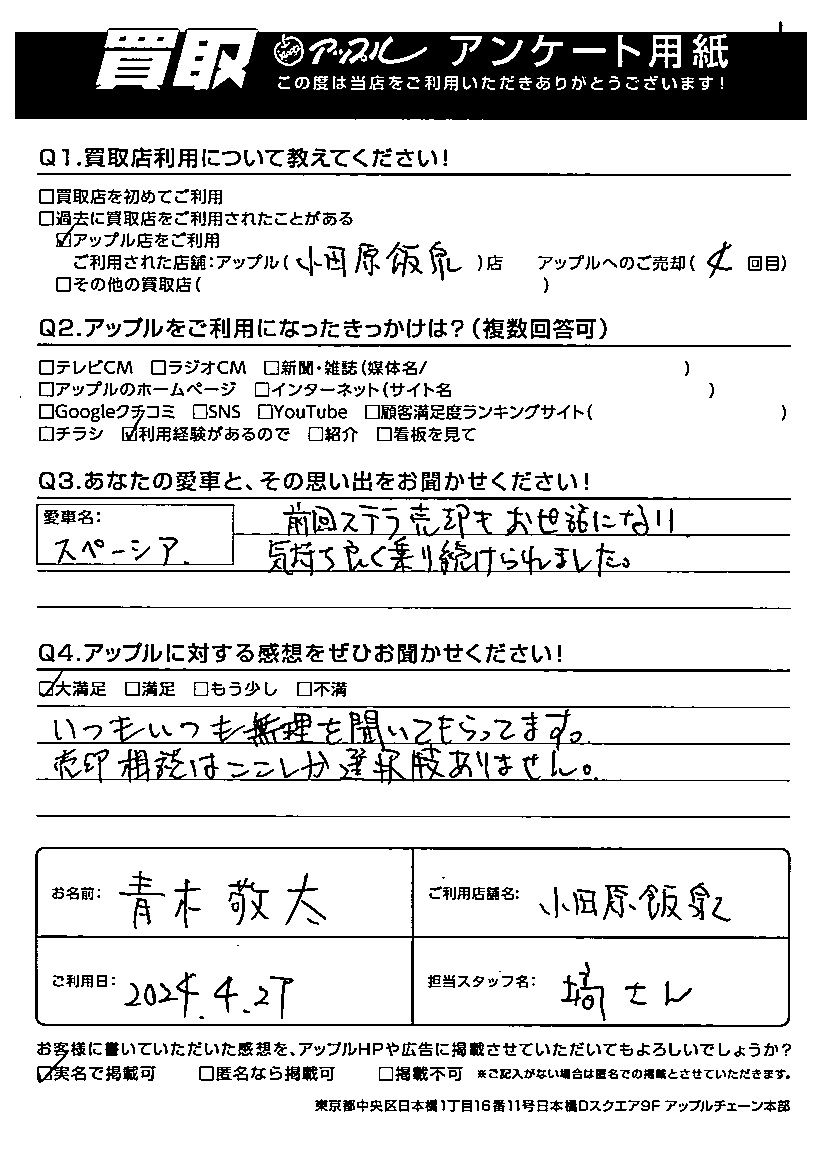 買取 アップル アンケート用紙
この度は当店をご利用いただきありがとうございます!
Q1.買取店利用について教えてください!
□買取店を初めてご利用
□過去に買取店をご利用されたことがある
☑アップル店をご利用
ご利用された店舗:アップル( 小田原飯泉 )店 アップルへのご売却( 4 回目)
□その他の買取店( )
Q2.アップルをご利用になったきっかけは?(複数回答可)
□テレビCM □ラジオCM □新聞・雑誌(媒体名/ )
□アップルのホームページ □インターネット(サイト名 )
□Googleクチコミ □SNS □YouTube □顧客満足度ランキングサイト( )
□チラシ ☑利用経験があるので □紹介 □看板を見て
Q3.あなたの愛車と、その思い出をお聞かせください!
愛車名: 前回ステラ売却もお世話になり
スペーシア. 気持ち良く乗り続けられました。
Q4.アップルに対する感想をぜひお聞かせください!
☑大満足 □満足 □もう少し □不満
いつもいつも無理を聞いてもらってます。
売却相談はここしか選択肢ありません。
お名前: 青木敬太 ご利用店舗名: 小田原飯泉
ご利用日: 2024.4.27 担当スタッフ名: 埼さん
お客様に書いていただいた感想を、アップルHPや広告に掲載させていただいてもよろしいでしょうか?
☑実名で掲載可 □匿名なら掲載可 □掲載不可 ※ご記入がない場合は匿名での掲載とさせていただきます。
東京都中央区日本橋1丁目16番11号日本橋Dスクエア9F アップルチェーン本部